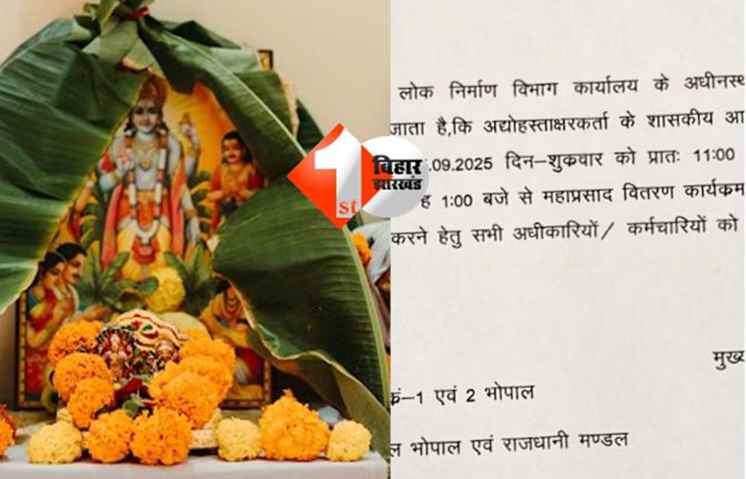 1
st
बिहार
झारखंड
लोक निर्माण विभाग कार्यालय के अधीनस्थ
जाता है,कि अद्योहस्ताक्षरकर्ता के शासकीय आ
.09.2025 दिन–शुक्रवार को प्रातः 11:00
ह 1:00 बजे से महाप्रसाद वितरण कार्यकम
करने हेतु सभी अधीकारियों/ कर्मचारियों को
मुख्य
कं–1 एवं 2 भोपाल
ल भोपाल एवं राजधानी मण्डल